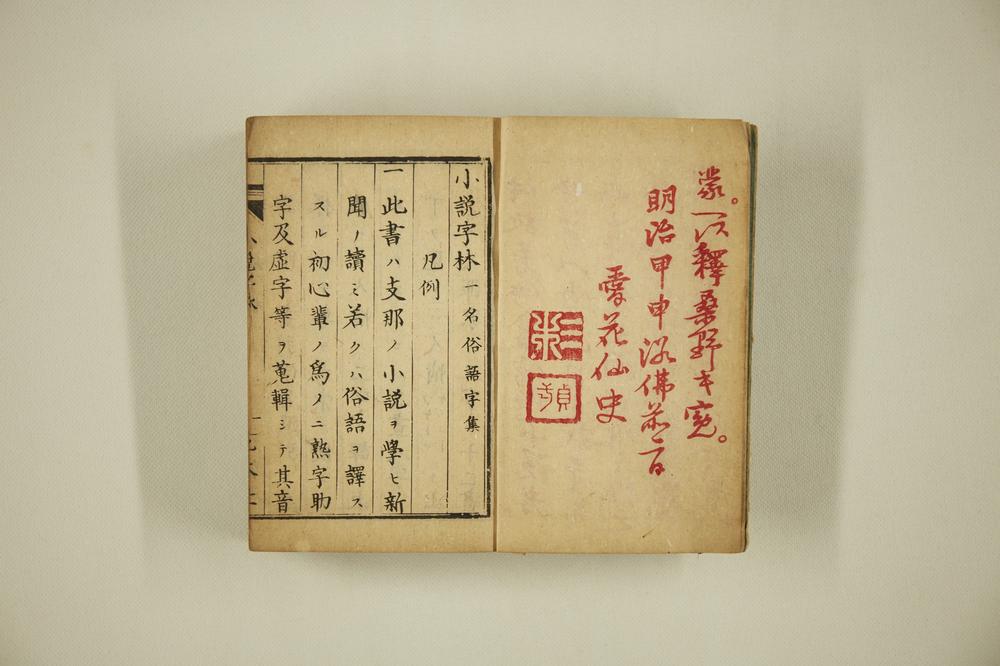 蒙。一以釋桑野キ寛。
明治甲申浴佛前一日
雪花仙史
小説字林 一名俗語字集
凡例
一此書ハ支那ノ小説ヲ學ヒ新
聞ノ讀ミ若クハ俗語ヲ譯ス
スル初心輩ノ爲ノニ熟字助
字及虚字等ヲ蒐輯シテ其音